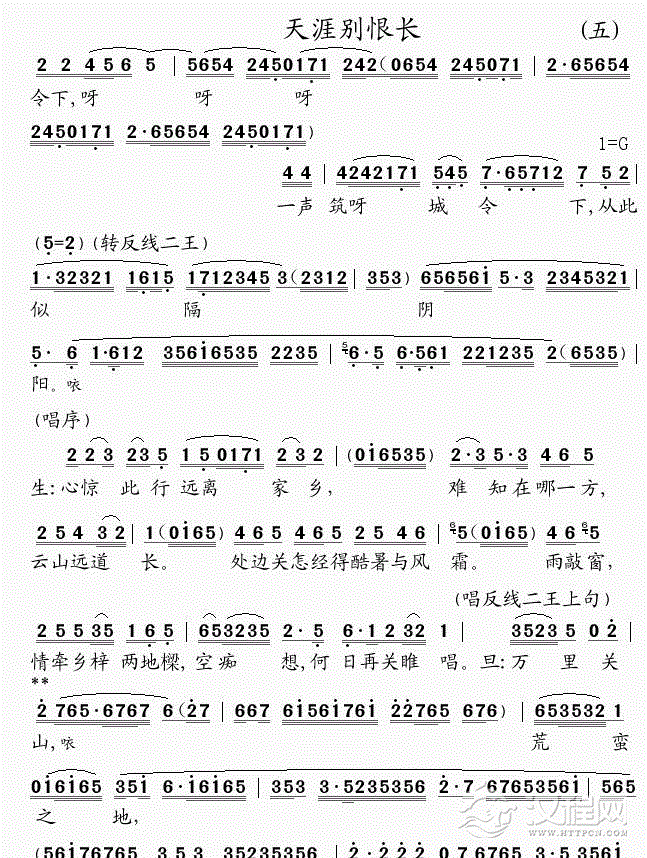 天涯别恨长 (五)
2 2 4 5 6 5 | 5654 2450171 242(0654 245071 | 2·65654
令下,呀 呀 呀
2450171 2·65654 2450171)
1=G
4 4 | 4242171 545 7·65712 7 5 2 |
一声 筑呀 城 令 下,从此
(5=2)(转反线二王)
1·32321 1615 1712345 3(2312 | 353) | 656561 5·3 2345321 |
似 隔 阴
5· 6 1·612 35616535 2235 | 5 6·5 6·561 221235 2(6535) |
阳。咴
(唱序)
2 2 3 23 5 1 5 0171 2 3 2 | (016535) 2·3 5·3 4 6 5
生:心惊 此 行 远离 家 乡, 难 知在哪一方,
2 5 4 3 2 | 1(0165) 4 6 5 4 6 5 0 5 4 6 | 6 5(0165) 4 6 6 5
云山远道 长。 处边关怎经得酷暑与风 霜。 雨敲窗,
(唱反线二王上句)
2 5 5 35 1 6 5 | 653235 2· 5 6·1 2 32 1 | 3523 5 0 2 |
情牵乡梓 两地櫟,空痴 想,何 日再关睢 唱。旦:万 里 关
**
2 765·6767 6(27 | 667 61561761 22765 676) | 653532 1
山,咴 荒 蛮
016165 351 6·16165 | 353 3·5235356 2·7 67653561 | 565
之 地,
汉程网
HTTPCN.COM